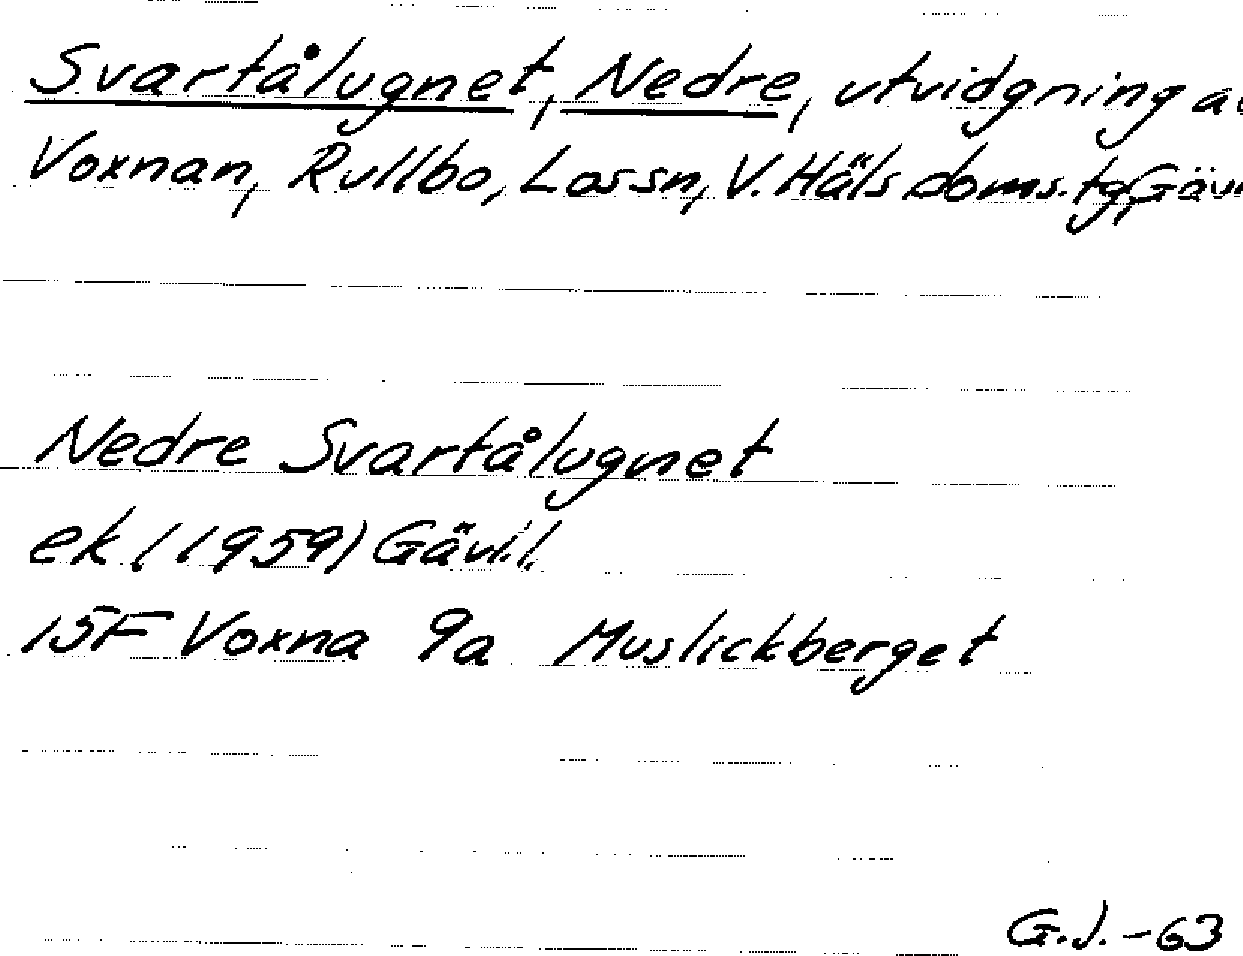 Svartålugnet, Nedre, utvidgning av
Voxnan, Rullbo, Los sn, V. Häls doms. tg, Gävl
Nedre Svartålugnet
ek. (1959) Gävl.l.
15F Voxna 9a Muslickberget
G.J. -63